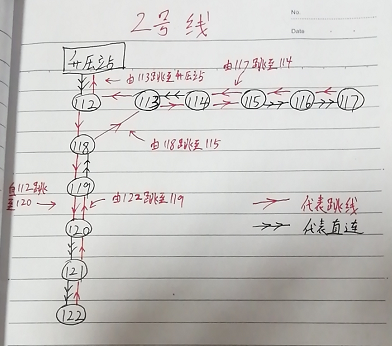 No.
Date
2号线
升压站
由113跳至升压站
由117跳至114
112
113
114
115
116
117
118
由118跳至115
119
由112跳
至120
由122跳至119
120
代表跳线
代表直连
121
122